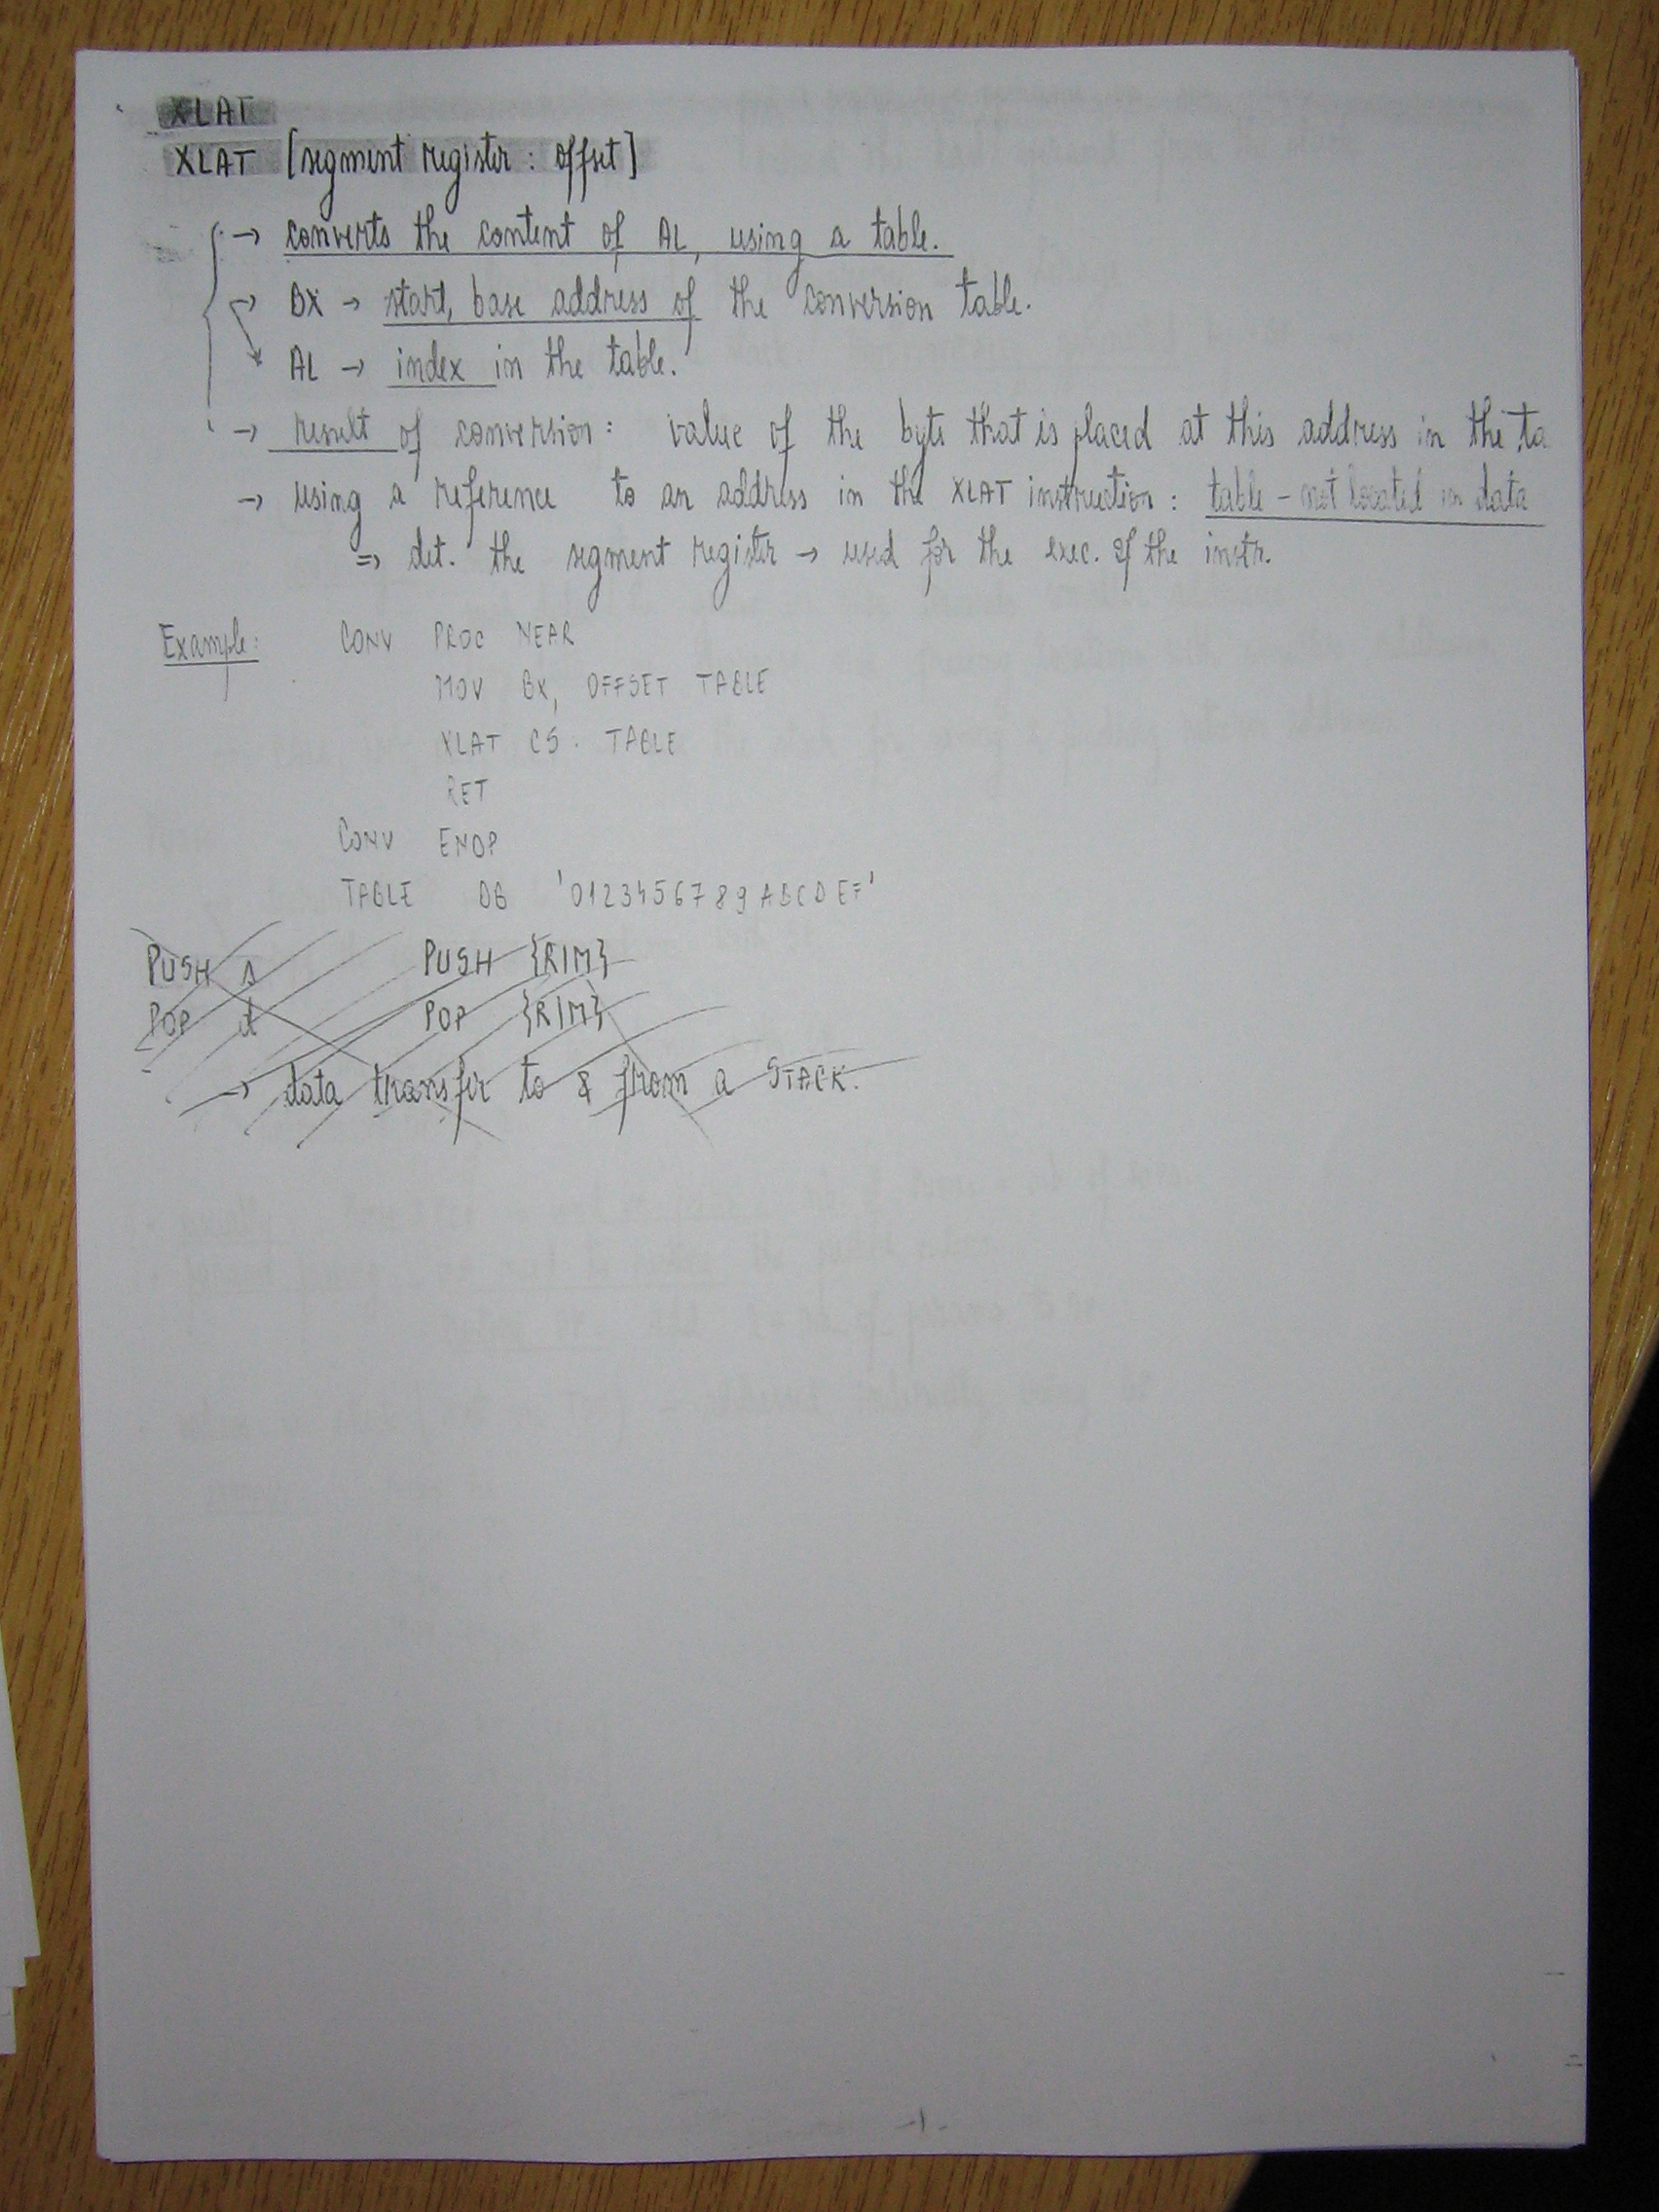 XLAT
XLAT [segment register : offset]
→ converts the content of AL, using a table.
→ BX → start, base address of the conversion table.
AL → index in the table.
→ result of conversion: value of the byte that is placed at this address in the ta
→ using a reference to an address in the XLAT instruction: table - not located in data
⇒ det. the segment register → used for the exec. of the instr.
Example: CONV PROC NEAR
MOV BX, OFFSET TABLE
XLAT CS: TABLE
RET
CONV ENDP
TABLE DB '0123456789ABCDEF'
PUSH s PUSH {R|M}
POP d POP {R|M}
→ data transfer to & from a STACK.
-1-